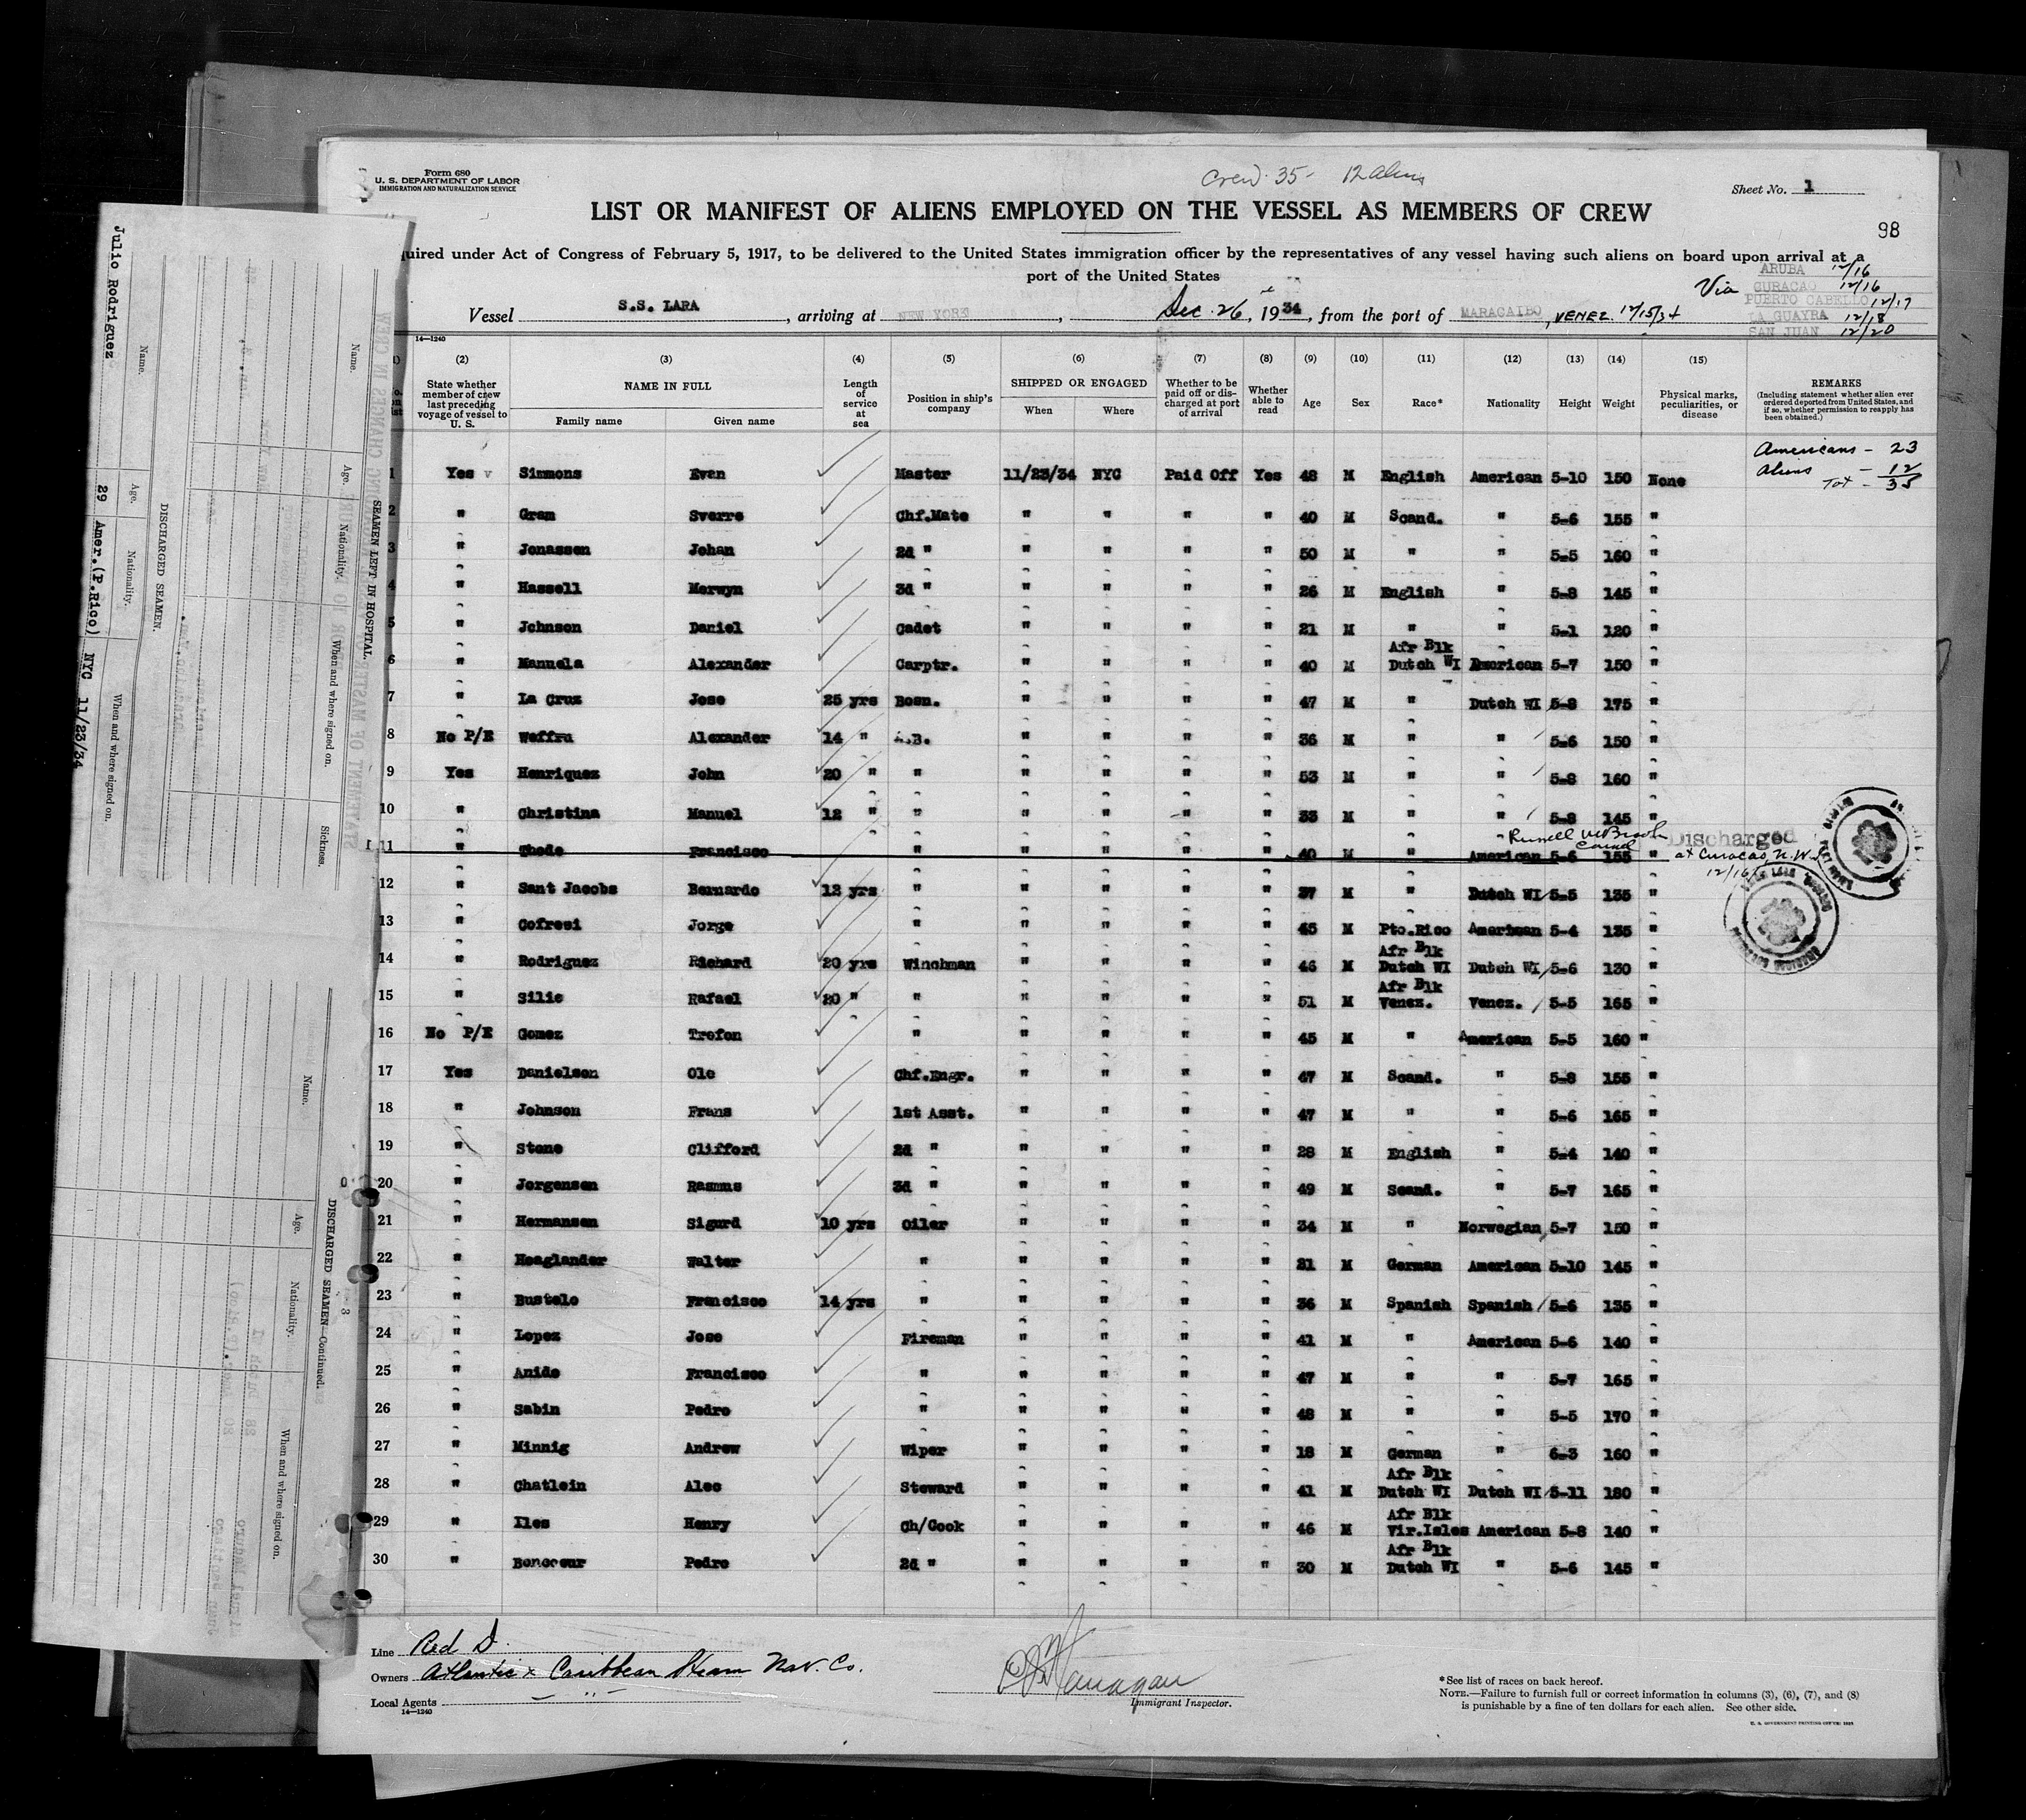 Form 680
U. S. DEPARTMENT OF LABOR
IMMIGRATION AND NATURALIZATION SERVICE
Crew 35 - 12 Aliens
Sheet No. 1
LIST OR MANIFEST OF ALIENS EMPLOYED ON THE VESSEL AS MEMBERS OF CREW
98
uired under Act of Congress of February 5, 1917, to be delivered to the United States immigration officer by the representatives of any vessel having such aliens on board upon arrival at a
port of the United States
Via ARUBA 12/16
CURACAO 12/16
PUERTO CABELLO 12/17
LA GUAYRA 12/18
SAN JUAN 12/20
Vessel S.S. LARA, arriving at NEW YORK, Dec. 26, 1934, from the port of MARACAIBO, VENEZ 12/15/34
14—1240
(2) (3) (4) (5) (6) (7) (8) (9) (10) (11) (12) (13) (14) (15)
State whether member of crew last preceding voyage of vessel to U. S. NAME IN FULL Family name Given name Length of service at sea Position in ship's company SHIPPED OR ENGAGED When Where Whether to be paid off or discharged at port of arrival Whether able to read Age Sex Race* Nationality Height Weight Physical marks, peculiarities, or disease REMARKS (Including statement whether alien ever ordered deported from United States, and if so, whether permission to reapply has been obtained.)
Americans - 23
Aliens - 12
Tot - 35
1 Yes Simmons Evan Master 11/23/34 NYC Paid Off Yes 48 M English American 5-10 150 None
2 " Gram Sverre Chf.Mate " " " " 40 M Scand. " 5-6 155 "
3 " Jonassen Johan 2d " " " " " 50 M " " 5-5 160 "
4 " Hassell Merwyn 3d " " " " " 26 M English " 5-8 145 "
5 " Johnson Daniel Cadet " " " " 21 M " " 5-1 120 "
6 " Manuela Alexander Carptr. " " " " 40 M Afr Blk Dutch WI American 5-7 150 "
7 " La Cruz Jose 25 yrs Bosn. " " " " 47 M " Dutch WI 5-8 175 "
8 No P/E Weffru Alexander 14 " A.B. " " " " 36 M " " 5-6 150 "
9 Yes Henriquez John 20 " " " " " " 53 M " " 5-8 160 "
10 " Christina Manuel 12 " " " " " " 33 M " " 5-8 145 "
11 " Thode Francisco " " " " " 40 M " American 5-6 155 " Discharged
at Curacao, N.W.I.
12/16
12 " Sant Jacobs Bernardo 12 yrs " " " " " 37 M " Dutch WI 5-5 135 "
13 " Cofresi Jorge " " " " " 45 M Pto.Rico American 5-4 135 "
14 " Rodriguez Richard 20 yrs Winchman " " " " 46 M Afr Blk Dutch WI Dutch WI 5-6 130 "
15 " Silie Rafael 20 " " " " " " 51 M Afr Blk Venez. Venez. 5-5 165 "
16 No P/E Gomez Trofon " " " " " 45 M " American 5-5 160 "
17 Yes Danielson Ole Chf.Engr. " " " " 47 M Scand. " 5-8 155 "
18 " Johnson Frans 1st Asst. " " " " 47 M " " 5-6 165 "
19 " Stone Clifford 2d " " " " " 28 M English " 5-4 140 "
20 " Jorgensen Rasmus 3d " " " " " 49 M Scand. " 5-7 165 "
21 " Hermansen Sigurd 10 yrs Oiler " " " " 34 M " Norwegian 5-7 150 "
22 " Hoaglander Walter " " " " " 21 M German American 5-10 145 "
23 " Bustelo Francisco 14 yrs " " " " " 36 M Spanish Spanish 5-6 135 "
24 " Lopez Jose Fireman " " " " 41 M " American 5-6 140 "
25 " Anido Francisco " " " " " 47 M " " 5-7 165 "
26 " Sabin Pedro " " " " " 48 M " " 5-5 170 "
27 " Minnig Andrew Wiper " " " " 18 M German " 6-3 160 "
28 " Chatlein Alec Steward " " " " 41 M Afr Blk Dutch WI Dutch WI 5-11 180 "
29 " Iles Henry Ch/Cook " " " " 46 M Afr Blk Vir.Isles American 5-8 140 "
30 " Boncoeur Pedro 2d " " " " " 30 M Afr Blk Dutch WI " 5-6 145 "
Line Red D.
Owners Atlantic & Caribbean Steam Nav. Co.
Local Agents — " —
14—1240
Immigrant Inspector.
*See list of races on back hereof.
NOTE.—Failure to furnish full or correct information in columns (3), (6), (7), and (8)
is punishable by a fine of ten dollars for each alien. See other side.
SEAMEN LEFT IN HOSPITAL.
Name. Age. Nationality. When and where signed on. Sickness.
DISCHARGED SEAMEN.
Name. Age. Nationality. When and where signed on.
Julio Rodriguez 29 Amer.(P.Rico) NYC 11/23/34
DISCHARGED SEAMEN—Continued.
Name. Age. Nationality. When and where signed on.